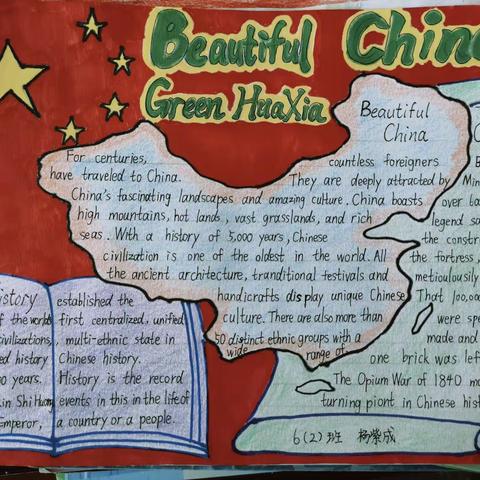 Beautiful China
Green HuaXia
Beautiful
China
For centuries, countless foreigners
have traveled to China. They are deeply attracted by
China's fascinating landscapes and amazing culture. China boasts
high mountains, hot lands, vast grasslands, and rich
seas. With a history of 5,000 years, Chinese
civilization is one of the oldest in the world. All
the ancient architecture, traditional festivals and
handicrafts display unique Chinese
culture. There are also more than
50 distinct ethnic groups with a
wide range of
history
f the world's
civilizations,
ed history
00 years.
in Shi Huang
emperor,
established the
first centralized, unified
, multi-ethnic state in
Chinese history.
History is the record
events in this in the life of
a country or a people.
Min
over
legend sa
the constr
the fortress,
meticulously
That 100,000
were spe
made and
one brick was left
The Opium War of 1840 ma
turning piont in Chinese hist
6(2)班 杨紫成